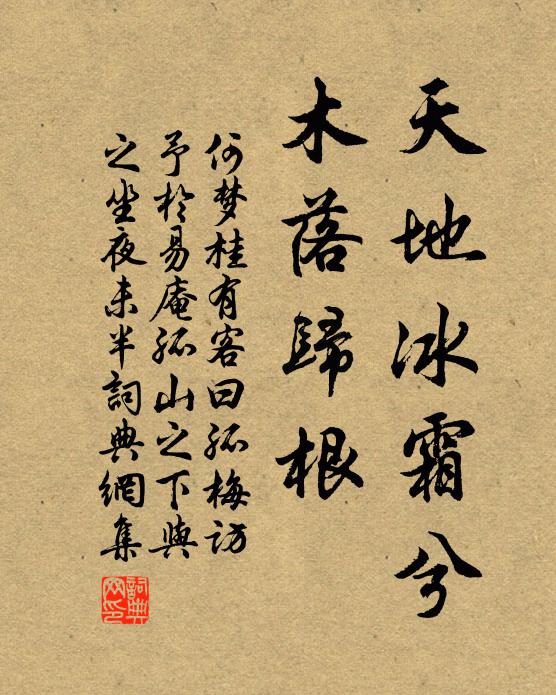 天地冰霜兮
木落歸根
何梦桂有客曰孤梅访
予於易庵孤山之下與
之坐夜未半詞典網集
詞典網印